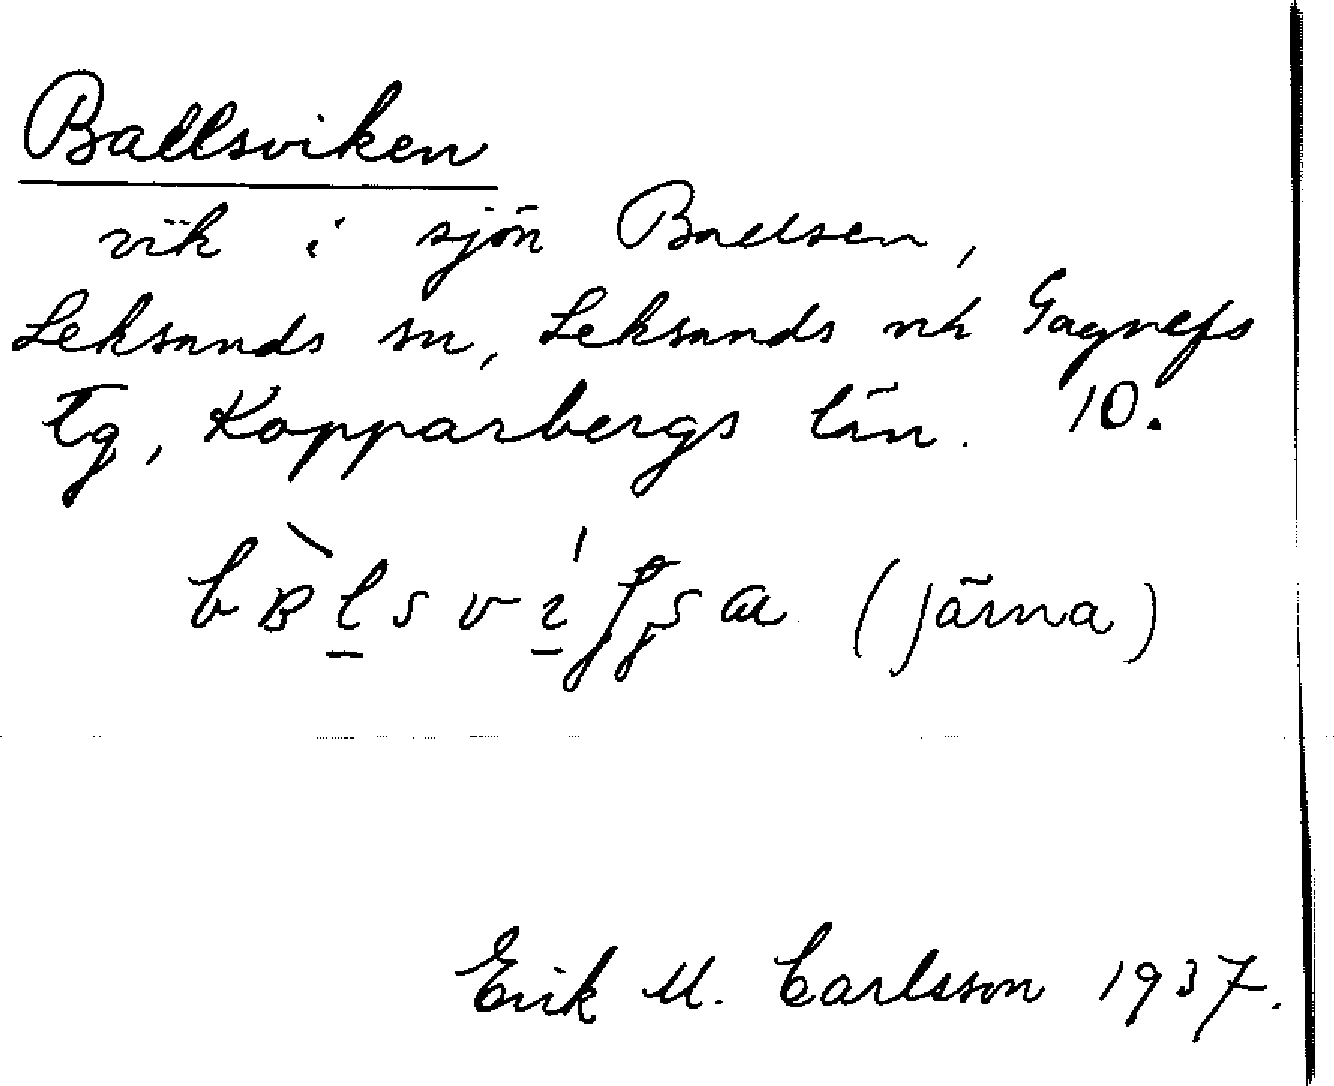 Ballsviken
vik i sjön Ballsen,
Leksands sn, Leksands och Gagnefs
tg, Kopparbergs län. 10.
(Järna)
Erik M. Carlsson 1937.